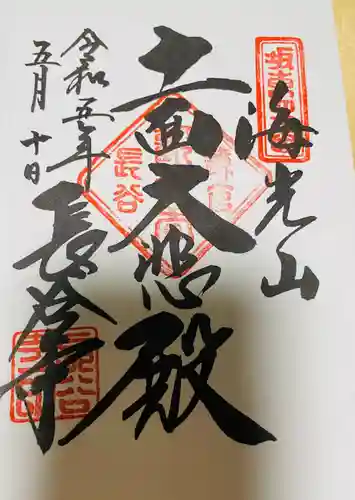 海光山
十一面大悲殿
長谷
令和五年
五月十日
長谷寺